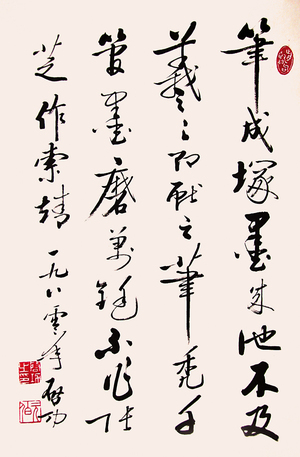 筆成塚墨成池不及
羲之即献之筆禿千
管墨磨萬鋌不作張
芝作索靖 一九八零年 啓功